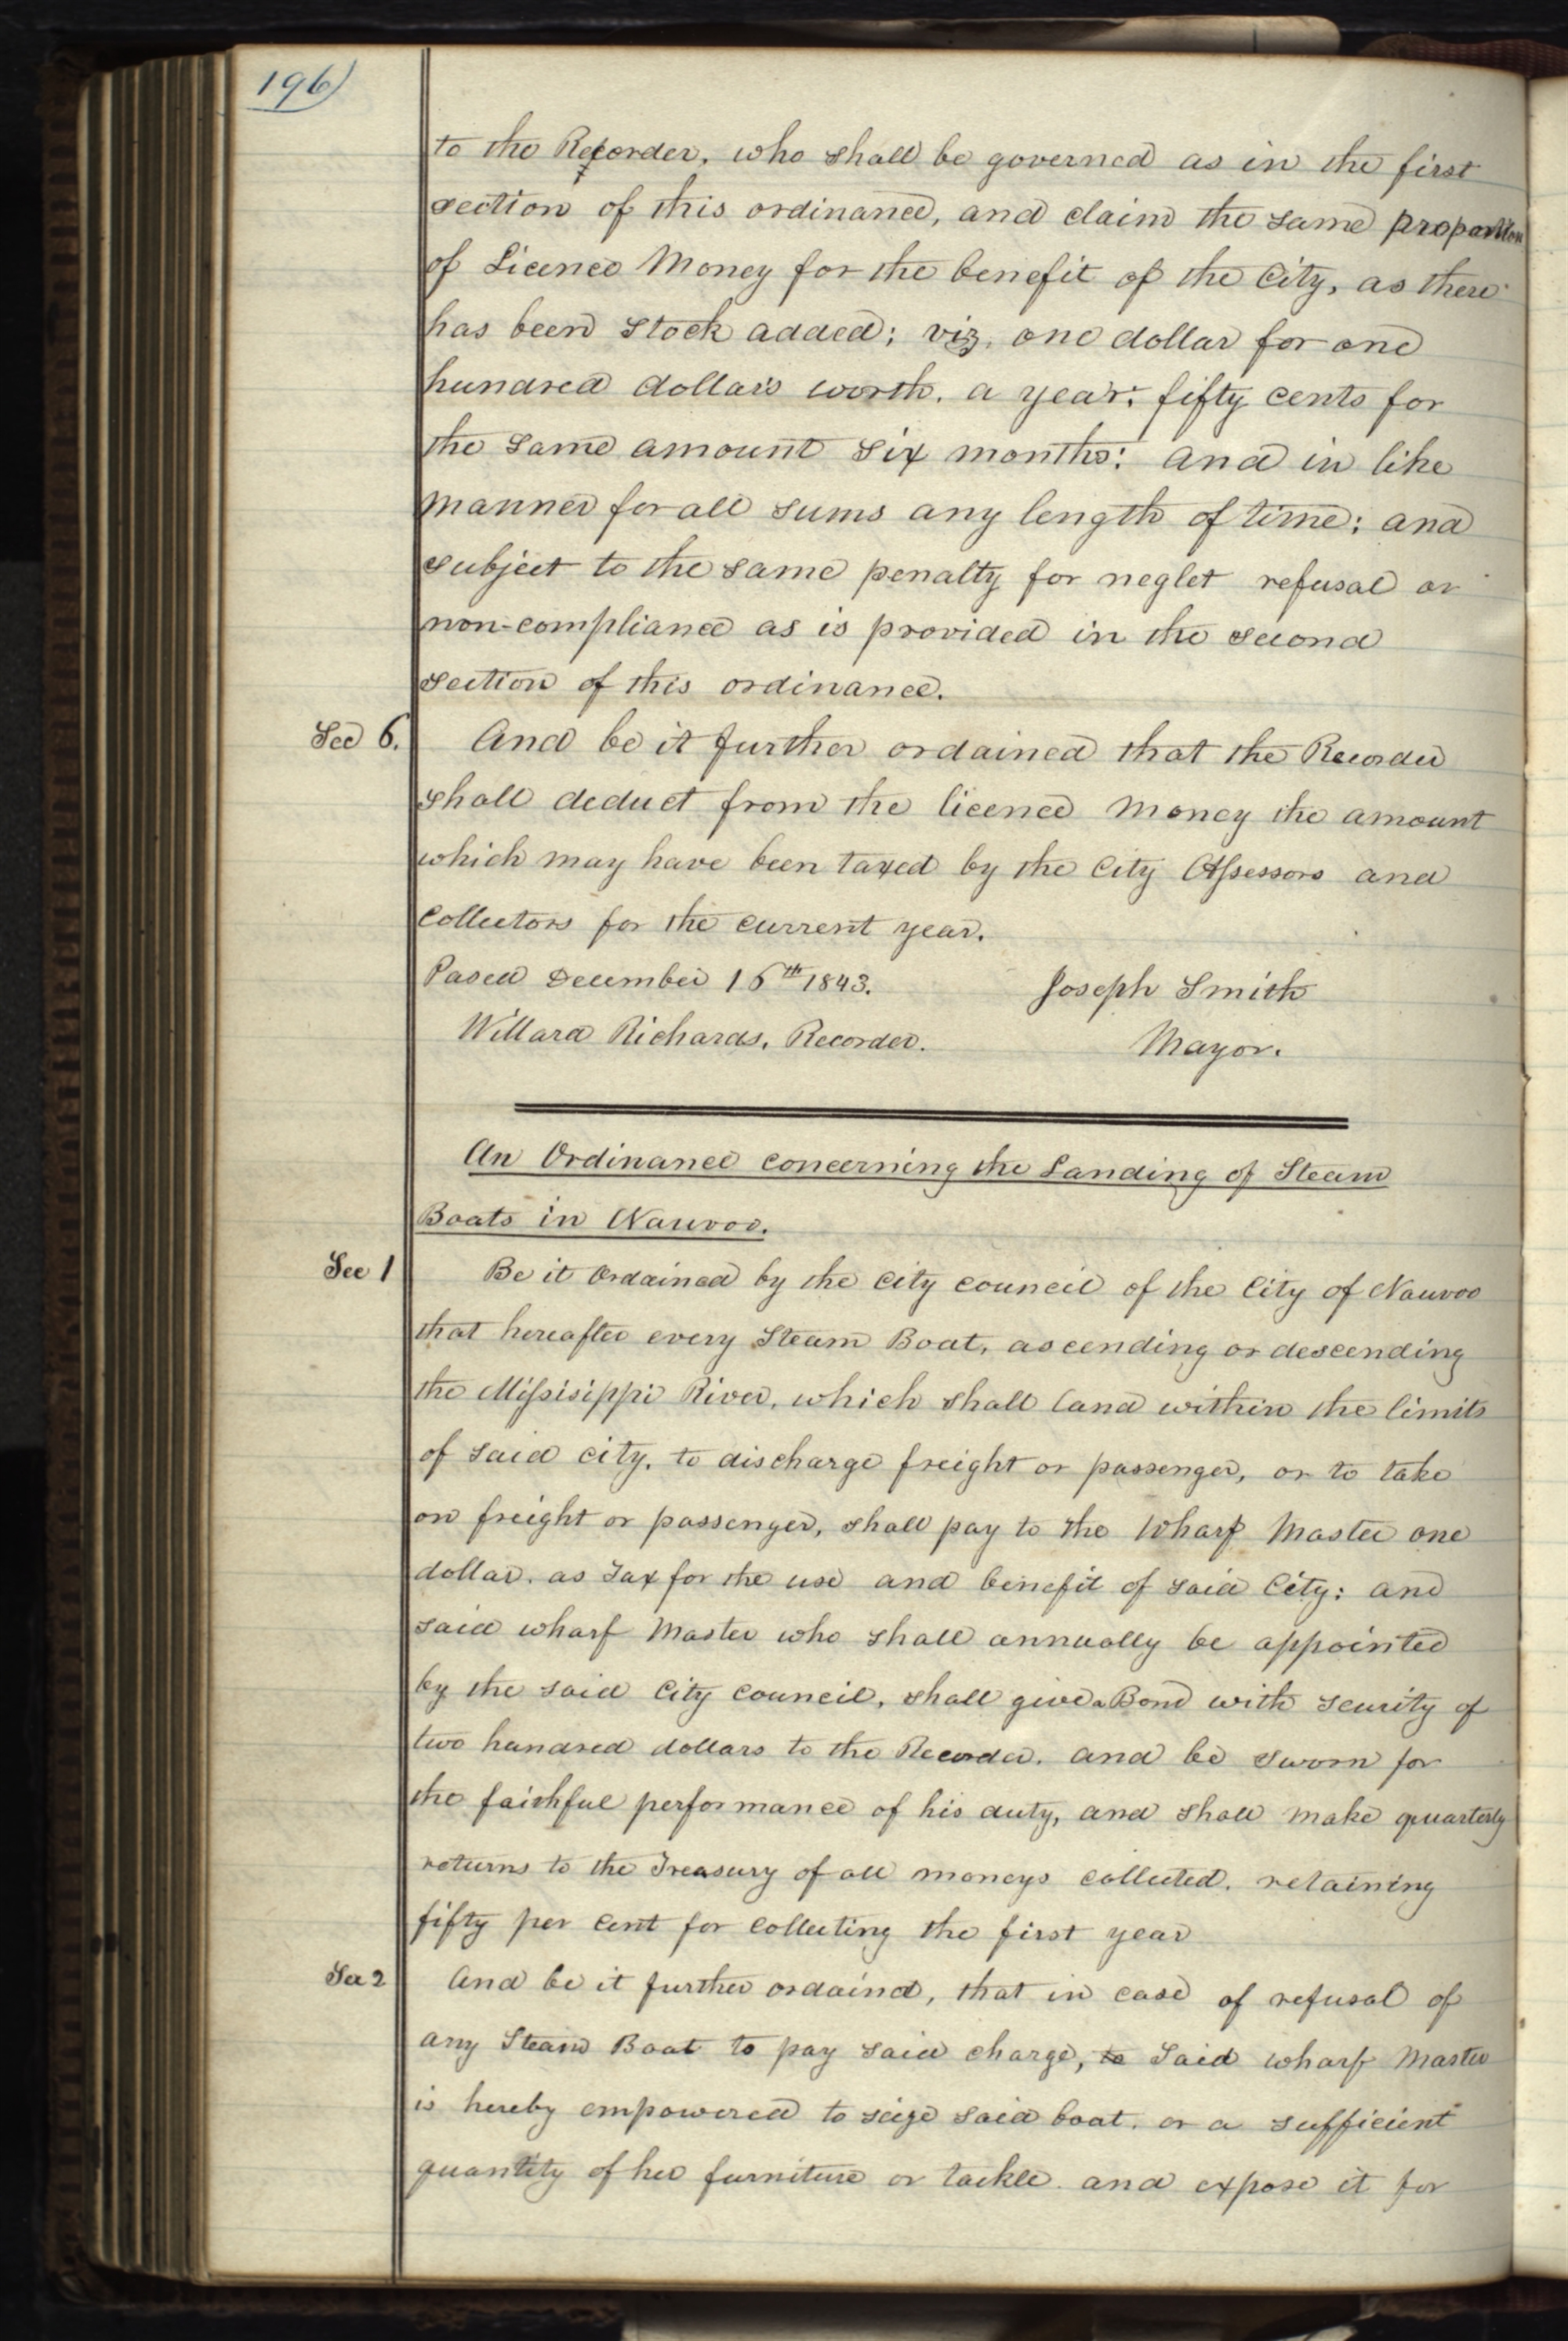 196)
to the Recorder, who shall be governed as in the first
section of this ordinance, and claim the same proportion
of Licence Money for the benefit of the City, as there
has been stock added; viz, one dollar for one
hundred dollars worth, a year; fifty cents for
the same amount six months; and in like
manner for all sums any length of time; and
subject to the same penalty for neglet refusal or
non-compliance as is provided in the second
section of this ordinance.
Sec 6. And be it further ordained that the Recorder
shall deduct from the licence money the amount
which may have been taxed by the City Assessors and
Collectors for the current year.
Pased December 16th 1843. Joseph Smith
Willard Richards, Recorder. Mayor.
An Ordinance concerning the Landing of Steam
Boats in Nauvoo.
Sec 1 Be it Ordained by the City Council of the City of Nauvoo
that hereafter every Steam Boat, ascending or descending
the Missisippi River, which shall land within the limits
of said city, to discharge freight or passenger, or to take
on freight or passenger, shall pay to the Wharf Master one
dollar, as Tax for the use and benefit of said City; and
said wharf Master who shall annually be appointed
by the said City Council, shall give a Bond with security of
two hundred dollars to the Recorder, and be sworn for
the faithful performance of his duty, and shall make quarterly
returns to the Treasury of all moneys collected, retaining
fifty per cent for collecting the first year
Sec 2 And be it further ordaind, that in case of refusal of
any Steam Boat to pay said charge, to Said wharf Master
is hereby empowered to seize said boat, or a sufficient
quantity of her furniture or tackle and expose it for